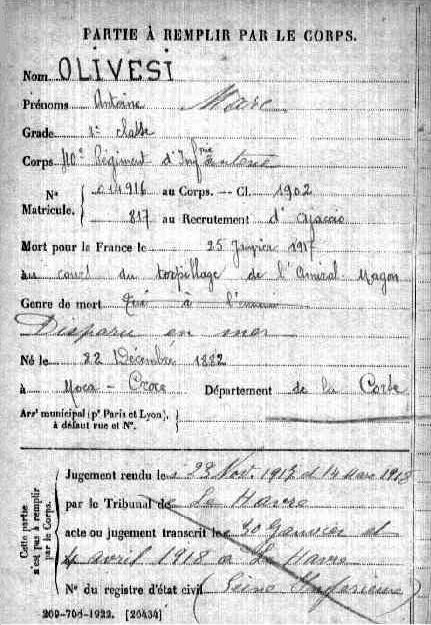 PARTIE À REMPLIR PAR LE CORPS.
Nom OLIVESI
Prénoms Antoine Marc
Grade 1e classe
Corps 410e Régiment d'Infanterie
N° Matricule. 014916 au Corps. — Cl. 1902
817 au Recrutement d'Ajaccio
Mort pour la France le 25 Janvier 1917
au cours du torpillage de l'Amiral Magon
Genre de mort Tué à l'ennemi
Disparu en mer
Né le 22 Décembre 1882
à Moca - Croce Département de la Corse
Arrt municipal (pr Paris et Lyon),
à défaut rue et N°.
Cette partie n'est pas à remplir par le Corps.
Jugement rendu le 23 Nov. 1917 et 14 Mars 1918
par le Tribunal de Le Havre
acte ou jugement transcrit le 30 Janvier et
4 avril 1918 a Le Havre
N° du registre d'état civil (Seine Inférieure)
209-708-1922. [26434]